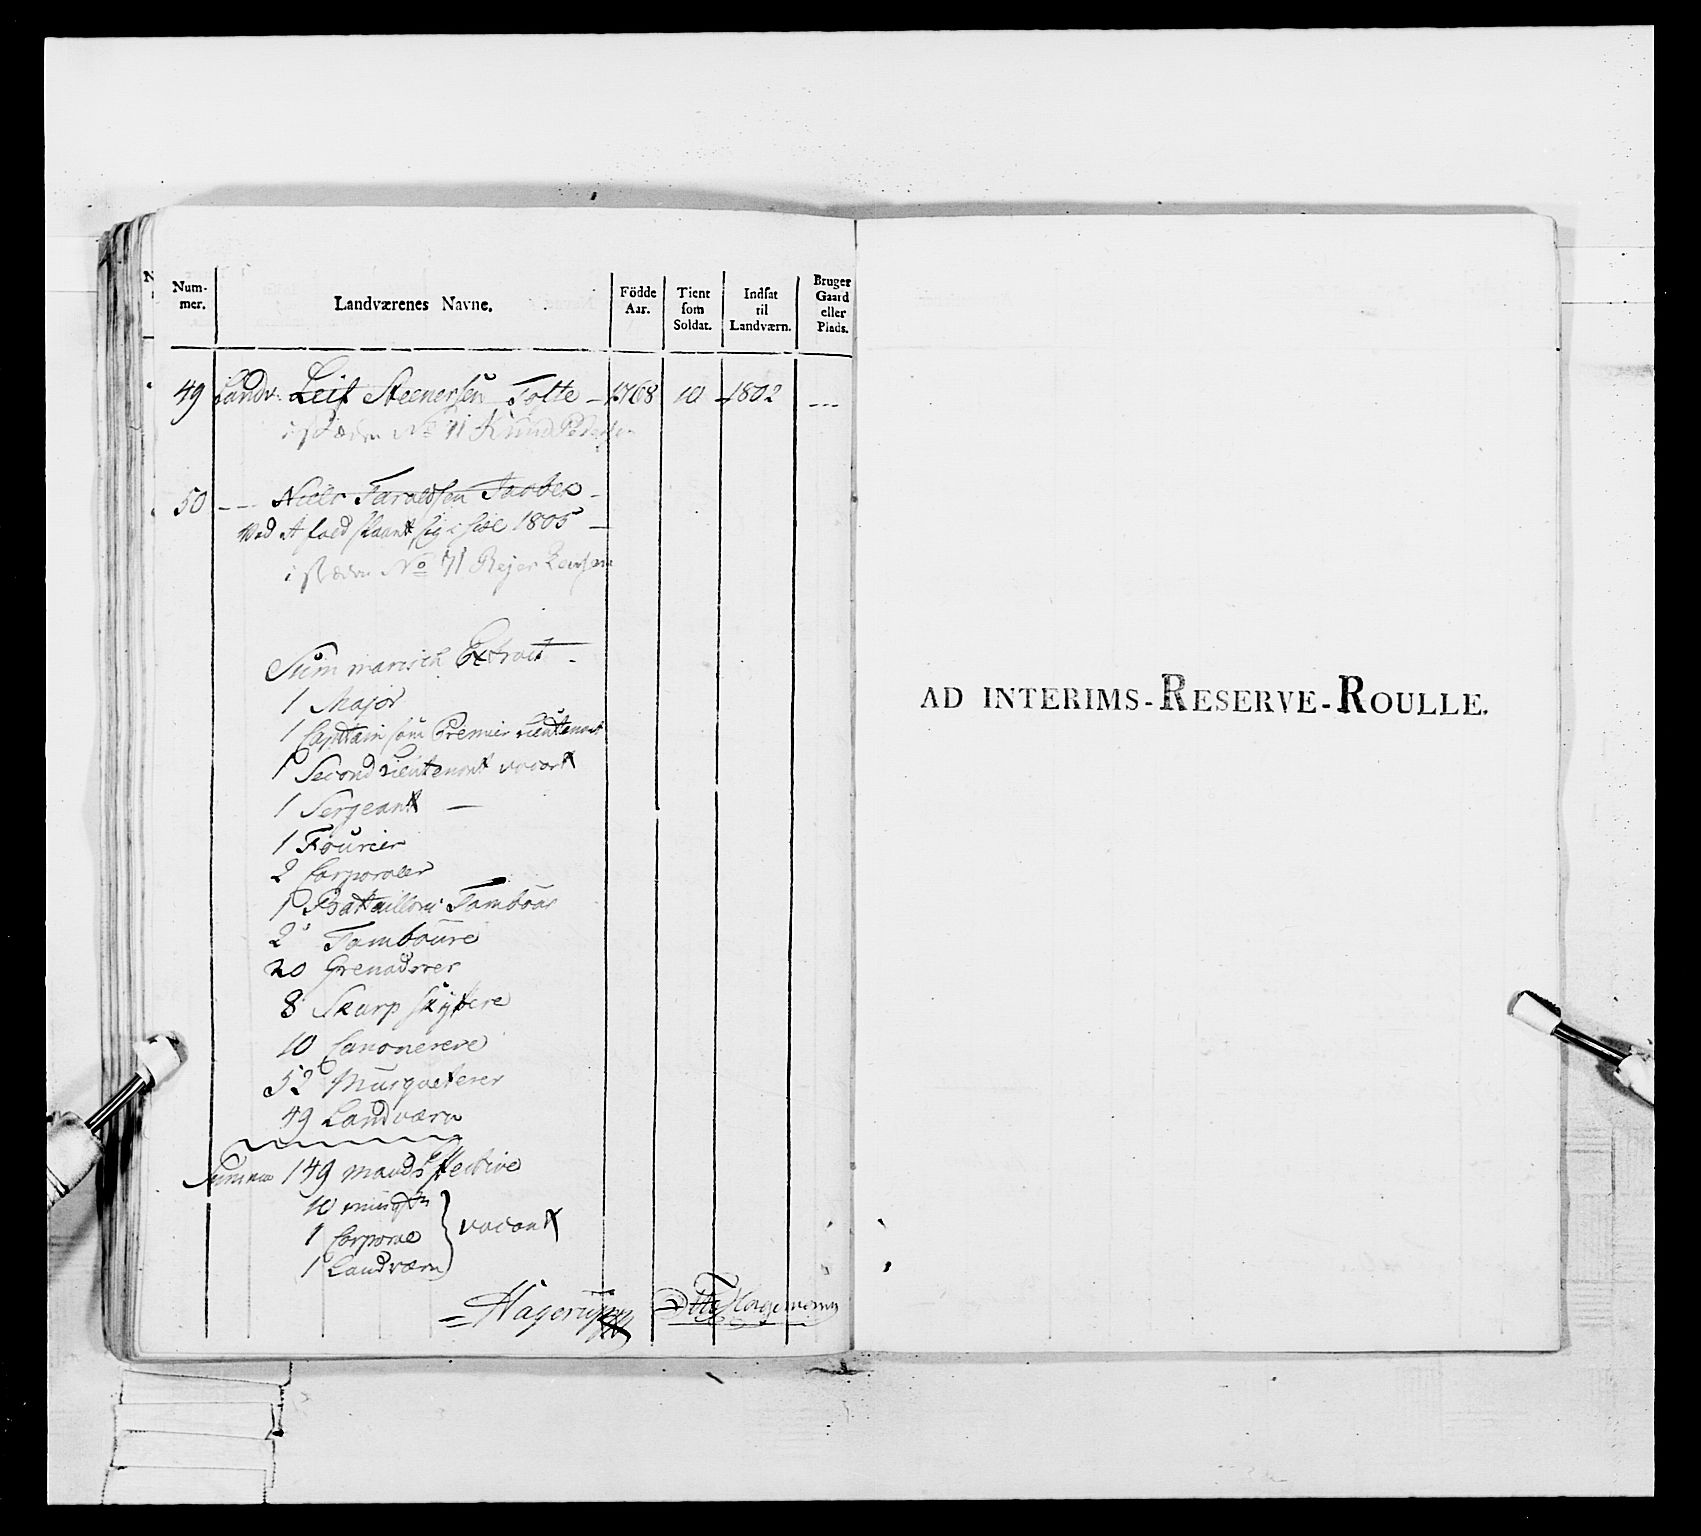 Num-
mer.
Landværenes Navne.
Födde
Aar.
Tient
som
Soldat.
Indsat
til
Landværn.
Bruger
Gaard
eller
Plads.
49 Landv. Leif Steenersen Tofte - 1768 10 1802 ---
i stæden No 71 Knud Pedersen
50 - - Niels Taraldsen -
Ved skaant sig i 1805 -
i stæden No 71 Rejer
Summarisch Extract.
1 Major
1 Capitain som Premier Lieutenant
1 Second Lieutenant vacant
1 Sergeant -
1 Fourier
2 Corporaler
1 Battaillons Tambour
2 Tamboure
20 Grenaderer
8 Skarpskyttere
10 Canonerere
52 Musqueterer
49 Landværn
Summa 149 mand Effective
10 musqtr
1 Corporal
1 Landværn
vacant
Hagerup
Otto Hagemann
AD INTERIMS-RESERVE-ROULLE.